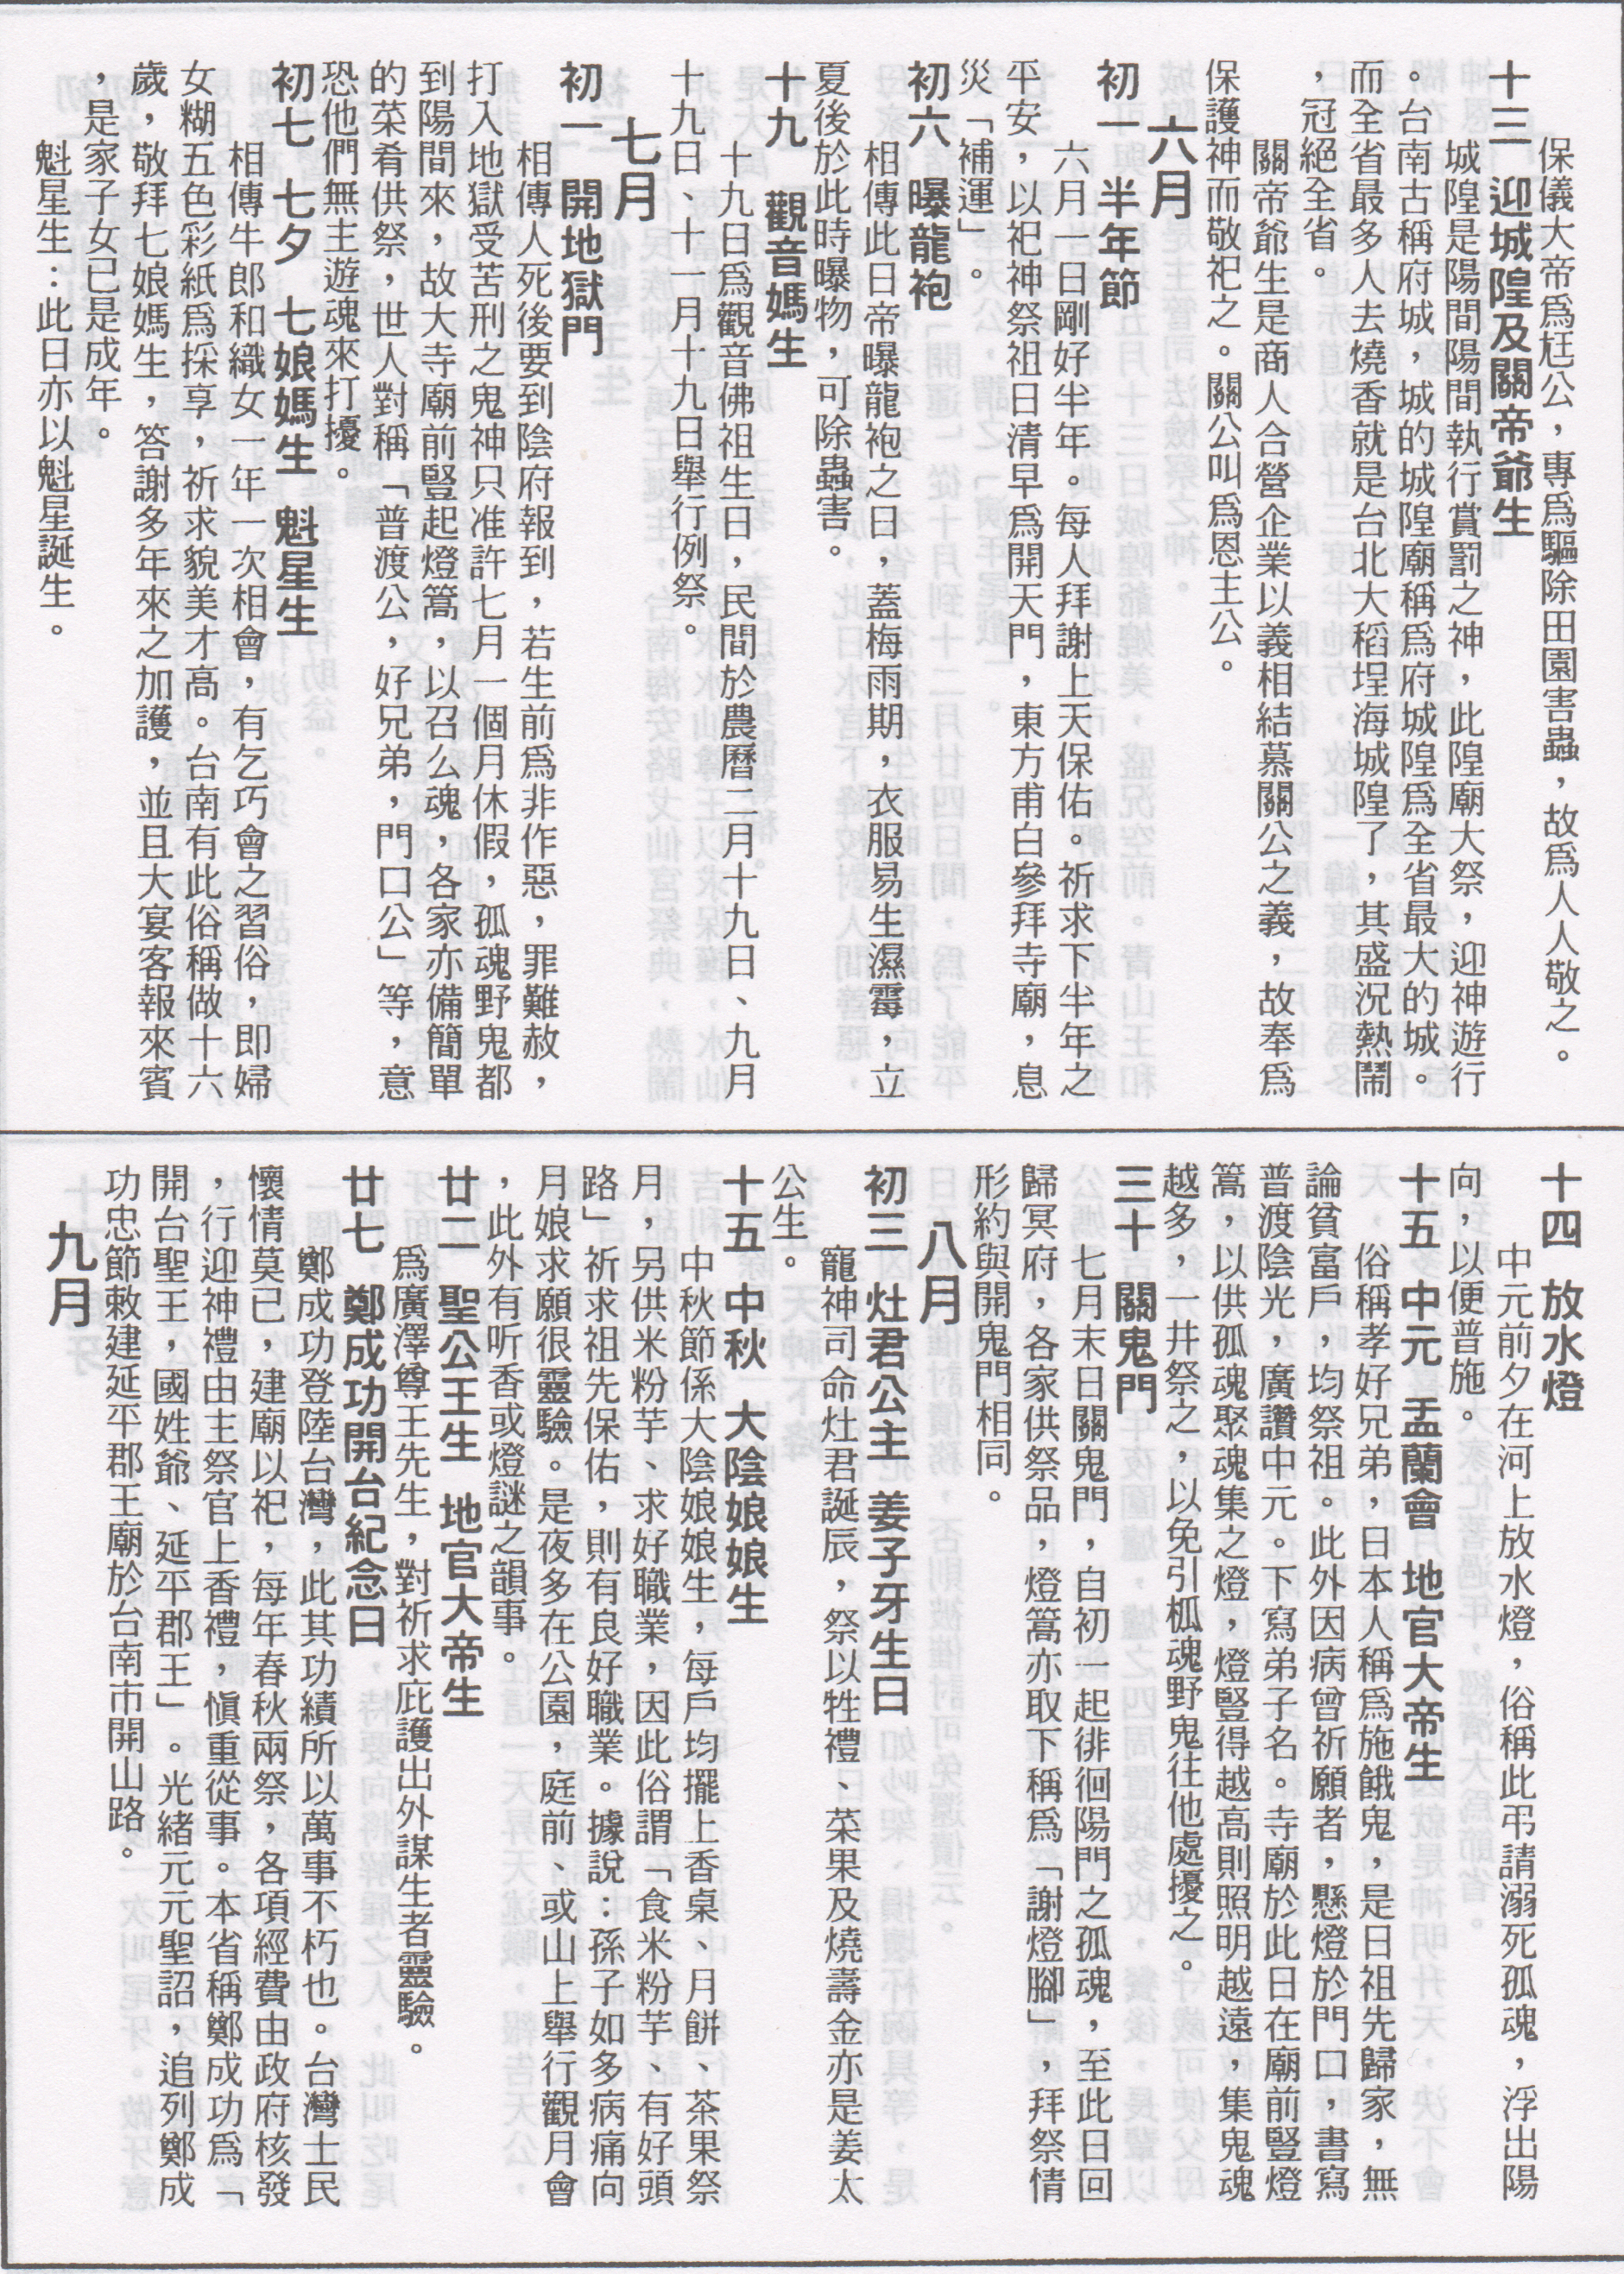 保儀大帝爲尫公，專爲驅除田園害蟲，故爲人人敬之。
十三 迎城隍及關帝爺生
城隍是陽間陽間執行賞罰之神，此隍廟大祭，迎神遊行
。台南古稱府城，城的城隍廟稱爲府城隍爲全省最大的城。
而全省最多人去燒香就是台北大稻埕海城隍了，其盛況熱鬧
，冠絕全省。
關帝爺生是商人合營企業以義相結慕關公之義，故奉爲
保護神而敬祀之。關公叫爲恩主公。
六月
初一 半年節
六月一日剛好半年。每人拜謝上天保佑。祈求下半年之
平安，以祀神祭祖日清早爲開天門，東方甫白參拜寺廟，息
災「補運」。
初六 曝龍袍
相傳此日帝曝龍袍之日，蓋梅雨期，衣服易生濕霉，立
夏後於此時曝物，可除蟲害。
十九 觀音媽生
十九日爲觀音佛祖生日，民間於農曆二月十九日、九月
十九日、十一月十九日舉行例祭。
七月
初一 開地獄門
相傳人死後要到陰府報到，若生前爲非作惡，罪難赦，
打入地獄受苦刑之鬼神只准許七月一個月休假，孤魂野鬼都
到陽間來，故大寺廟前豎起燈篙，以召公魂，各家亦備簡單
的菜肴供祭，世人對稱「普渡公，好兄弟，門口公」等，意
恐他們無主遊魂來打擾。
初七 七夕 七娘媽生 魁星生
相傳牛郎和織女一年一次相會，有乞巧會之習俗，即婦
女糊五色彩紙爲採享，祈求貌美才高。台南有此俗稱做十六
歲，敬拜七娘媽生，答謝多年來之加護，並且大宴客報來賓
，是家子女已是成年。
魁星生：此日亦以魁星誕生。
十四 放水燈
中元前夕在河上放水燈，俗稱此弔請溺死孤魂，浮出陽
向，以便普施。
十五 中元 盂蘭會 地官大帝生
俗稱孝好兄弟，日本人稱爲施餓鬼，是日祖先歸家，無
論貧富戶，均祭祖。此外因病曾祈願者，懸燈於門口，書寫
普渡陰光，廣讚中元。下寫弟子名。寺廟於此日在廟前豎燈
篙，以供孤魂聚魂集之燈，燈豎得越高則照明越遠，集鬼魂
越多，一井祭之，以免引柧魂野鬼往他處擾之。
三十 關鬼門
七月末日關鬼門，自初一起徘徊陽門之孤魂，至此日回
歸冥府，各家供祭品，燈篙亦取下稱爲「謝燈腳」，拜祭情
形約與開鬼門相同。
八月
初三 灶君公主 姜子牙生日
竉神司命灶君誕辰，祭以牲禮、菜果及燒壽金亦是姜太
公生。
十五 中秋 大陰娘娘生
中秋節係大陰娘娘生，每戶均擺上香桌、月餅、茶果祭
月，另供米粉芋、求好職業，因此俗謂「食米粉芋、有好頭
路」祈求祖先保佑，則有良好職業。據說：孫子如多病痛向
月娘求願很靈驗。是夜多在公園，庭前、或山上舉行觀月會
，此外有听香或燈謎之韻事。
廿二 聖公王生 地官大帝生
爲廣澤尊王先生，對祈求庇護出外謀生者靈驗。
廿七 鄭成功開台紀念日
鄭成功登陸台灣，此其功績所以萬事不朽也。台灣士民
懷情莫已，建廟以祀，每年春秋兩祭，各項經費由政府核發
，行迎神禮由主祭官上香禮，愼重從事。本省稱鄭成功爲「
開台聖王，國姓爺、延平郡王」。光緒元元聖詔，追列鄭成
功忠節敕建延平郡王廟於台南市開山路。
九月